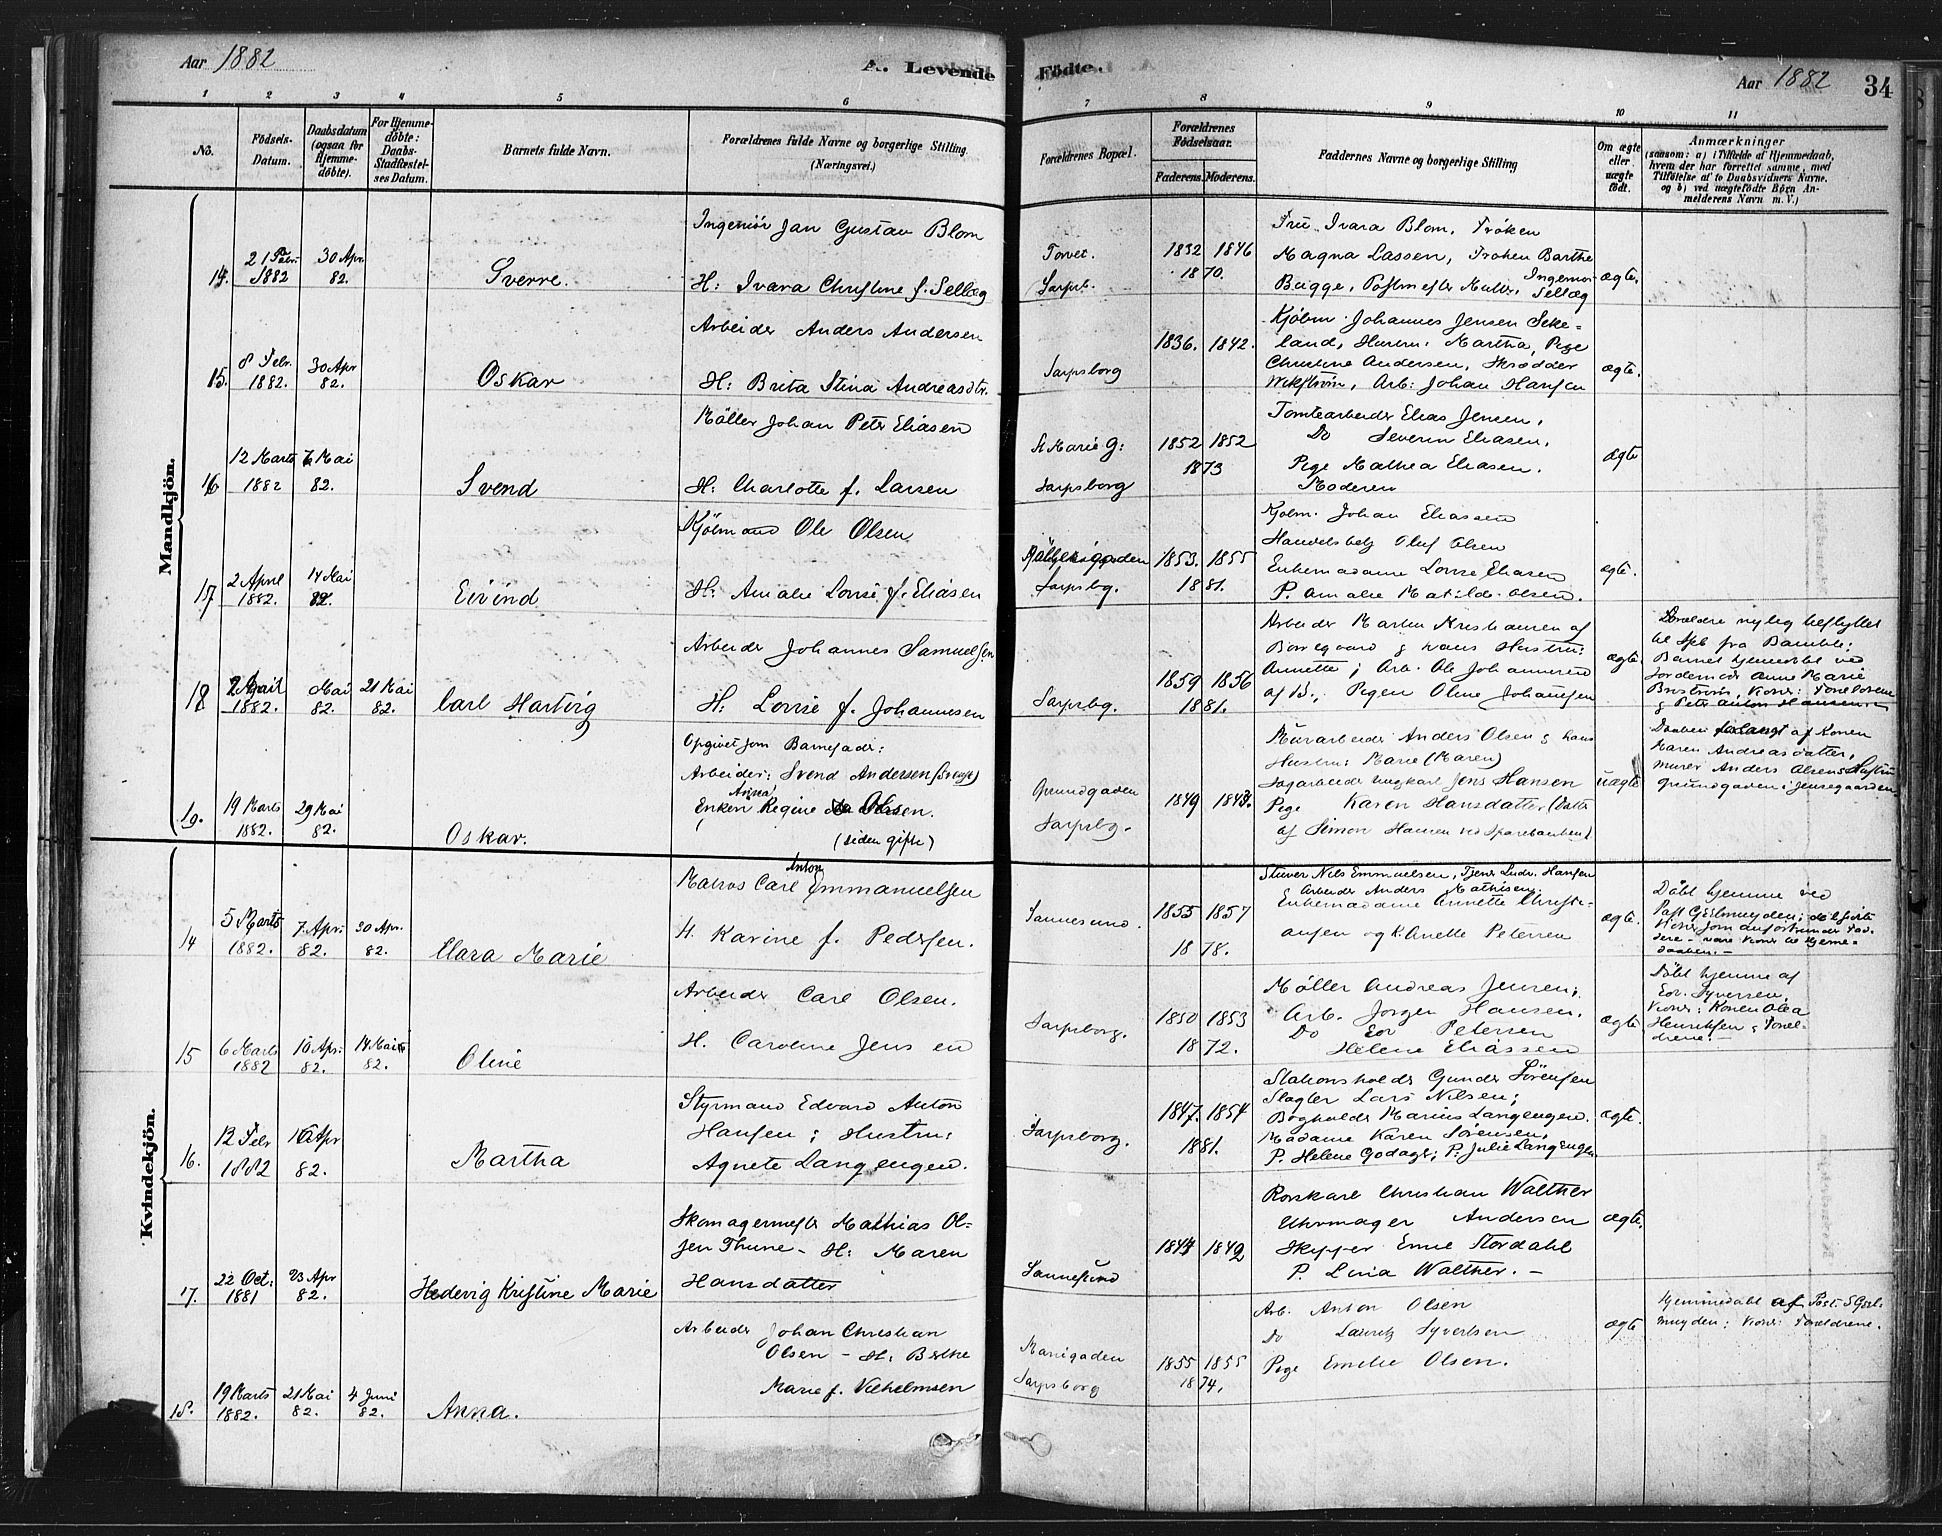 Aar 1882
A. Levende
Fødte.
Aar 1882
34
1 2 3 4 5 6 7 8 9 10 11
No.
Fødsels-
Datum.
Daabsdatum
(ogsaa for
Hjemme-
døbte).
For Hjemme-
døbte:
Daabs-
Stadfæstel-
ses Datum.
Barnets fulde Navn.
Forældrenes fulde Navne og borgerlige Stilling
(Næringsvei.)
Forældrenes Bopæl.
Forældrenes
Fødselsaar.
Faderens. Moderens.
Faddernes Navne og borgerlige Stilling
Om ægte
eller
uægte
født.
Anmærkninger
(saasom: a) i Tilfælde af Hjemmedaab,
hvem der har forrettet samme, med
Tilføielse af to Daabsvidners Navne.
og b) ved uægtefødte Børn An-
melderens Navn m. V.)
Mandkjön.
14.
21 Febr.
1882
30 Apr.
82.
Sverre.
Ingeniör Jan Gustav Blom
H: Ivara Christine f. Selleg
Torvet.
Sarpsb.
1832 1846
1870.
Fru Ivara Blom, Frøken
Magna Lassen, Frøken Barthe
Bugge, Postmester Ingeniør
Selleg
ægte.
15.
8 Febr.
1882.
30 Apr
82.
Oskar
Arbeider Anders Andersen
H: Brita Stina Andreasdtr.
Sarpsborg
1836. 1842.
Kjöbm. Johannes Jensen
land, Hustru: Martha, Pige
Christine Andersen, Skrædder
Wikström, Arb: Johan Hansen
ægte.
16
12 Marts
1882
7 Mai
82.
Svend
Möller Johan Peter Eliasen
H: Charlotte f. Larsen
St Marie G:
Sarpsborg
1852 1852
1873
Tomtearbeider Elias Jensen,
Do Severin Eliasen,
Pige Mathea Eliasen.
Moderen
ægte
17
2 April
1882.
14 Mai
82.
Eivind
Kjöbmand Ole Olsen
H: Amalie Lovise f. Eliasen
Sarpsbg.
1853. 1855
1881.
Kjøbm. Johan Eliassen
Handelsbetj Oluf Olsen
Enkemadame Lovise Eliasen
P. Amalie Matilde Olsen.
ægte.
18
2 April
1882.
Mai
82.
21 Mai
82.
Carl Hartvig
Arbeider Johannes Samuelsen
H: Lovise f. Johannesen
Sarpsbg.
1859 1856
1881.
Arbeider Martin Kristiansen af
Borregaard & hans Hustru:
Annette; Arb. Ole Johannesen
af B.; Pigen Oline Johansen
ægte
Forældre nylig tilflyttet
til Spb fra Bamble:
Barnet hjemdøbt ved
Jordemor Anne Marie
Vidner: Forældrene
& Peter Anton Hansen
19.
19 Marts
1882.
29 Mai
82.
Oskar.
Opgivet som Barnefader:
Arbeider: Svend Andersen (Svensk)
Enken Anna Regine Olsen.
(siden gift)
Grundgaden
Sarpsbg.
1849 1843.
Murarbeider Anders Olsen & hans
Hustru: Marie (Maren)
Sagarbeider ungkarl Jens Hansen
Pige Karen Hansdatter (Datter
af Simon Hansen ved Sparebanken)
uægte
Daaben forlangt af Konen
Maren Andreasdatter,
murer Anders Olsens Hustru
Grundgaden i Jensegaarden
Kvindekjön.
14
5 Marts
1882.
7 Apr.
82.
30 Apr.
82.
Clara Marie
Matros Carl Anton Emmanuelsen
H. Karine f. Pedersen.
Sannesund.
1855 1857
1878.
Stuver Nils Emmuelsen, Tjener Ludv. Hansen
& Arbeider Anders Mathisen;
Enkemadame Annette Christi-
ansen og K. Anette Petersen
ægte.
Döbt hjemme ved
Past Gjelmuyden;
Vidner som anført under Fad-
dere - vare Vidner til Hjemme-
daaben.-
15
6 Marts
1882
10 Apr.
82.
14 Mai
82.
Oline
Arbeider Carl Olsen.
H. Caroline Jensen
Sarpsborg.
1850 1853
1872.
Möller Andreas Jensen;
Arb. Jørgen Hansen.
Do Edv Petersen
Helene Eliassen
ægte
Döbt hjemme af
Edv. Syversen.
Vidner: Konen Olea
Henriksen & Foræl-
drene.-
16.
12 Febr
1882
16 Apr
82.
Martha
Styrmand Edvard Anton
Hansen; Hustru:
Agnete Langengen.
Sarpsborg.
1847. 1854
1881.
Stationsholder Gunder Sørensen
Slagter Lars Nilsen;
Bogholder Marius Langengen.
Madame Karen Sørensen.
P. Helene Godager; P. Julie Langengen
ægte.
17.
22 Oct.
1881
23 Apr
82.
Hedevig Kristine Marie
Skomagermester Mathias Ol-
sen Thune - H: Maren
Hansdatter
Sannesund
1844 1842
Rorskarl Christian Walther
Uhrmager Andersen
Skipper Emil Stordahl
P. Lina Walther.-
ægte.
18.
19 Marts
1882.
21 Mai
82.
4 Juni
82.
Anna.
Arbeider Johan Christian
Olsen - H: Berthe
Marie f. Vilhelmsen
Marigaden
Sarpsborg
1855 1855
1874.
Arb. Anton Olsen
Do Lauritz Syvertsen
Pige Emilie Olsen.
ægte
Hjemmedøbt af Past. S Gjel-
muyden; Vidner: Forældrene.